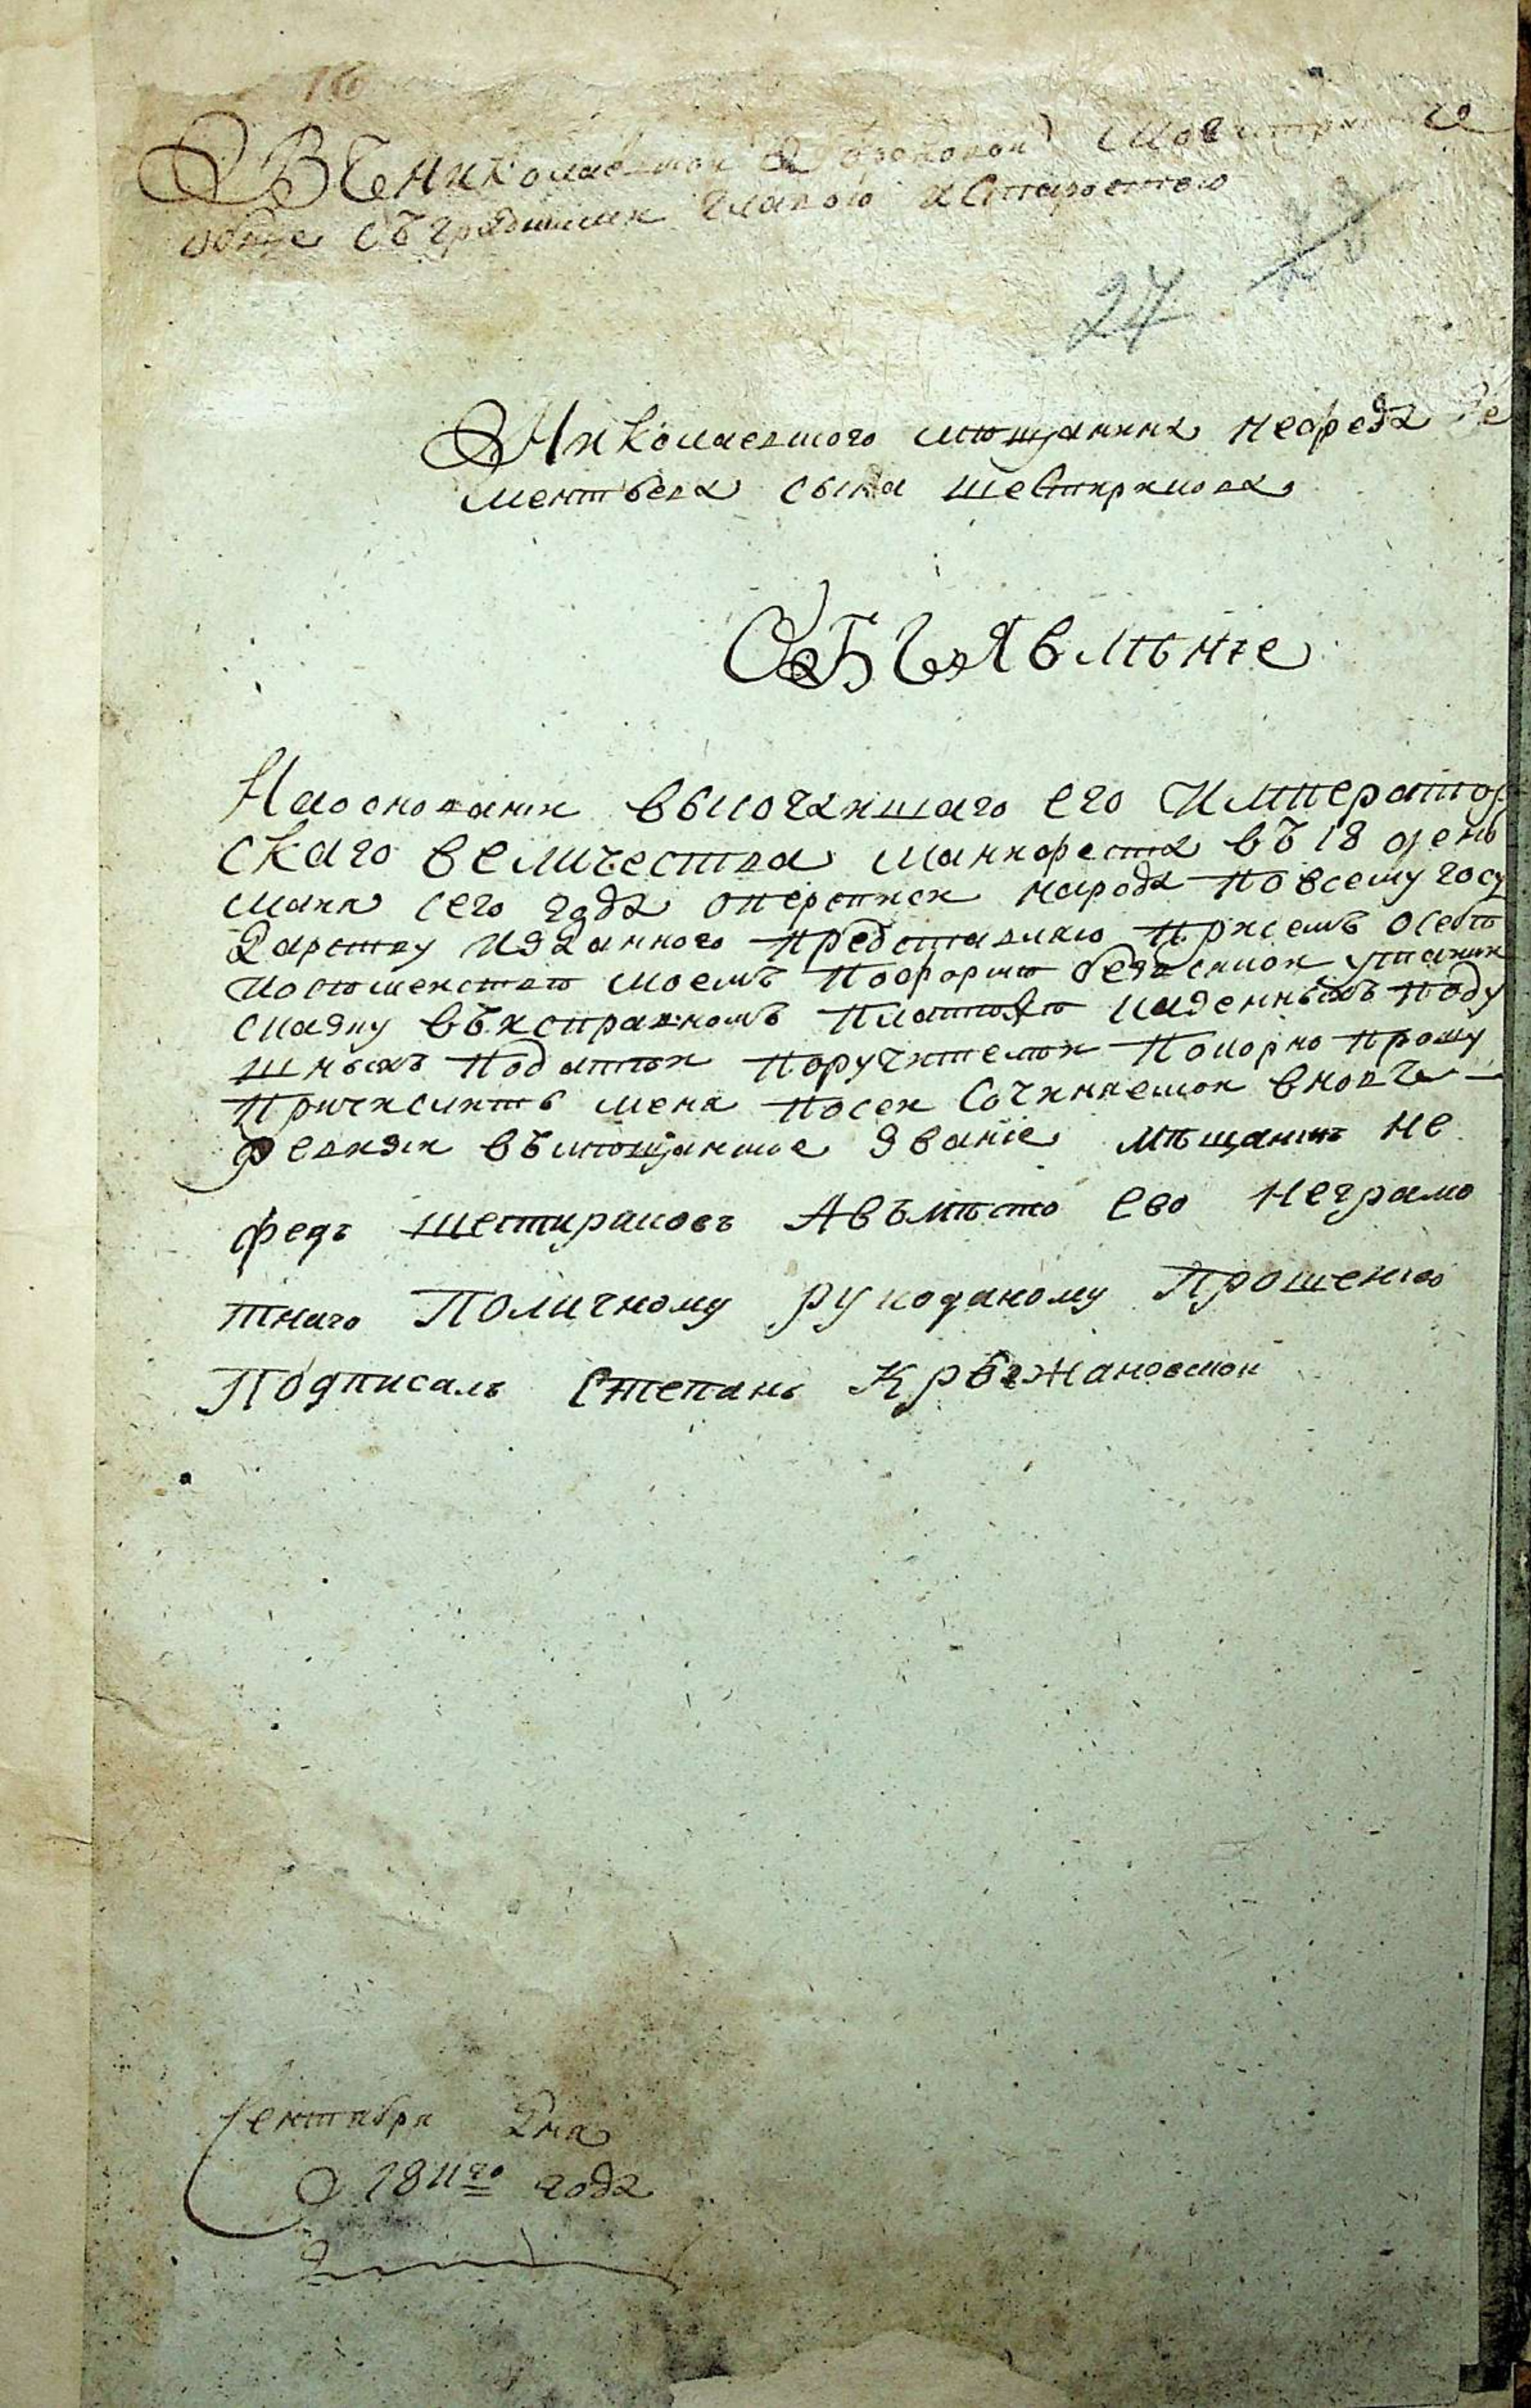 16
ВЪ Николаевской Городовой Магистратъ
обще съ градскимъ главою и Старостою
27
Николаевского мѣщанина Нефеда Де
ментьева сына шестиракова
ОБЪЯвлѣніе
На основании высочайшаго его Император
скаго величества манифеста въ 18 день
маия сего года о переписи народа по всему госу
дарству изданного представляю при семъ о себѣ
и о семействѣ моемъ по форме ska
сказку въ исправномъ платежѣ казенныхъ поду
шныхъ податей поручителей Покорно прошу
Причислить меня по сей Сочиняемой вновь
ревизии въ мѣщанское звание мѣщанинъ не
федъ шестираковъ А въмѣсто ево неграмо
тнаго По личному рукоданому Прошению
Подписалъ Степанъ Крыжановской
Сентября дня
1811го года